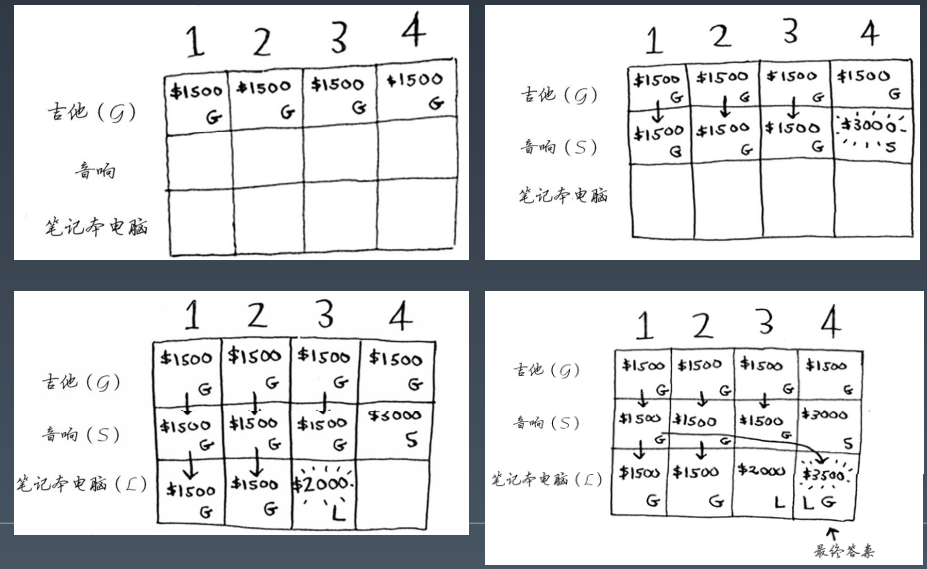 1 2 3 4
吉他(G) $1500 G $1500 G $1500 G $1500 G
音响
笔记本电脑
1 2 3 4
吉他(G) $1500 G $1500 G $1500 G $1500 G
音响(S) $1500 G $1500 G $1500 G $3000 S
笔记本电脑
1 2 3 4
吉他(G) $1500 G $1500 G $1500 G $1500 G
音响(S) $1500 G $1500 G $1500 G $3000 S
笔记本电脑(L) $1500 G $1500 G $2000 L
1 2 3 4
吉他(G) $1500 G $1500 G $1500 G $1500 G
音响(S) $1500 G $1500 G $1500 G $3000 S
笔记本电脑(L) $1500 G $1500 G $2000 L $3500 L G
最终答案